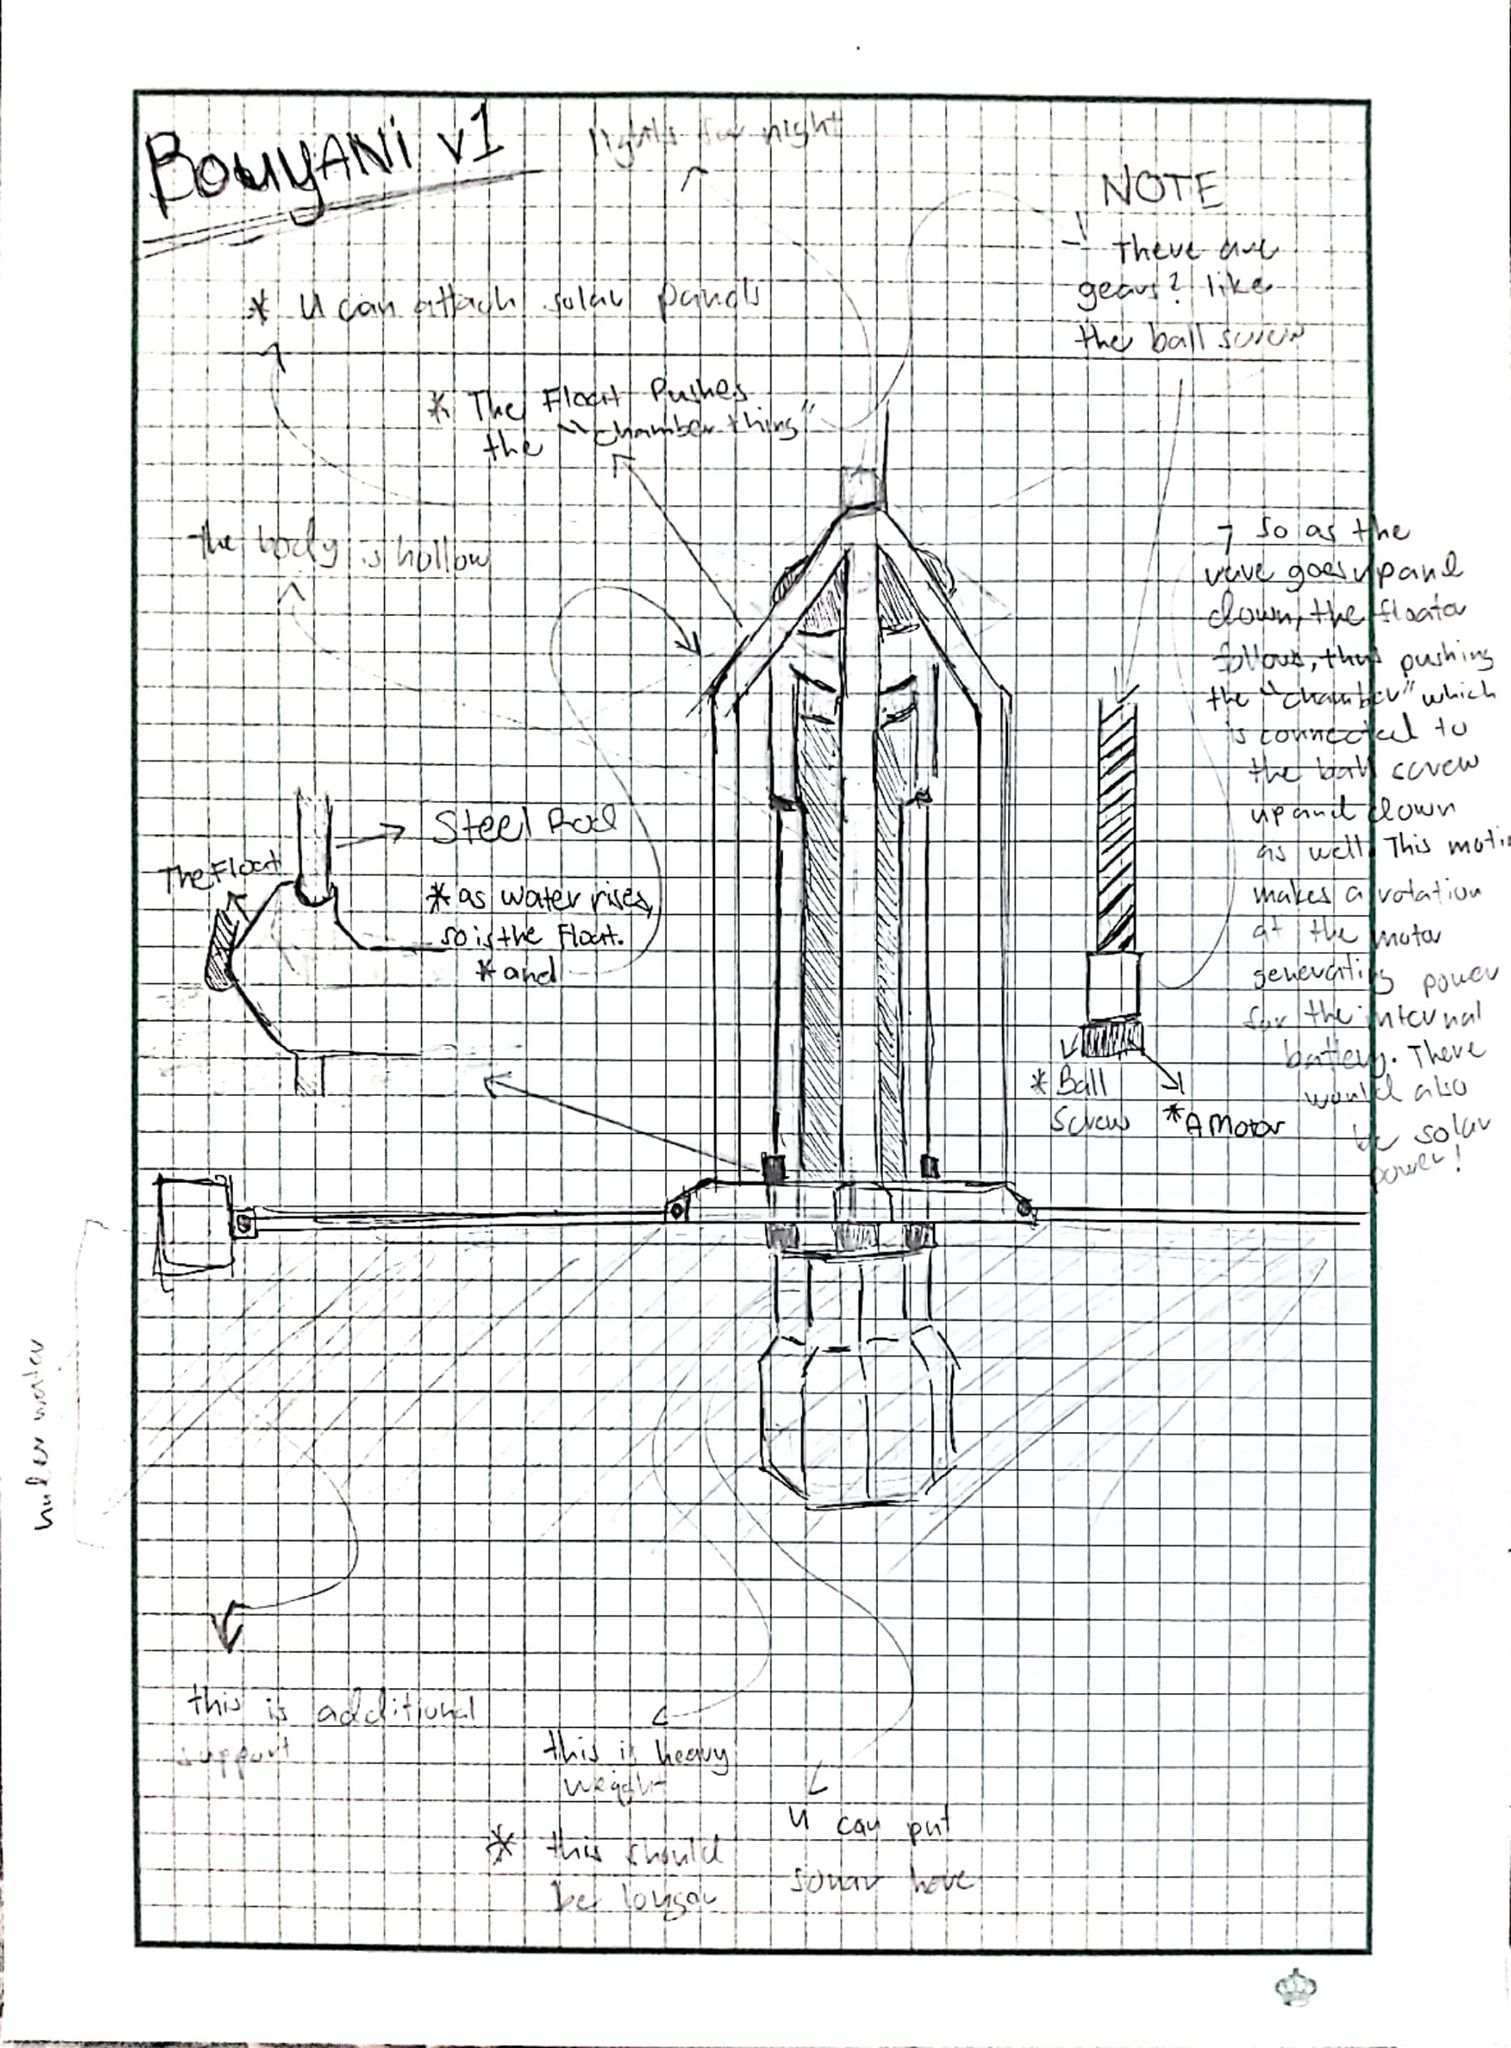 BOUYANi v1
lights for night
NOTE
! there are
gears? like
the ball screw
* U can attach solar panels
* The Float Pushes
the "chamber thing"
the body is hollow
→ so as the
wave goes up and
down, the floater
follows, thus pushing
the "chamber" which
is connected to
the ball screw
up and down
as well. This motion
makes a rotation
at the motor
generating power
for the internal
battery. There
would also
be solar
power!
Steel Rod
The Float
* as water rises,
so is the Float.
* and
* Ball
Screw
* A Motor
under water
this is additional
support
this is heavy
weight
* this should
be longer
U can put
sonar here